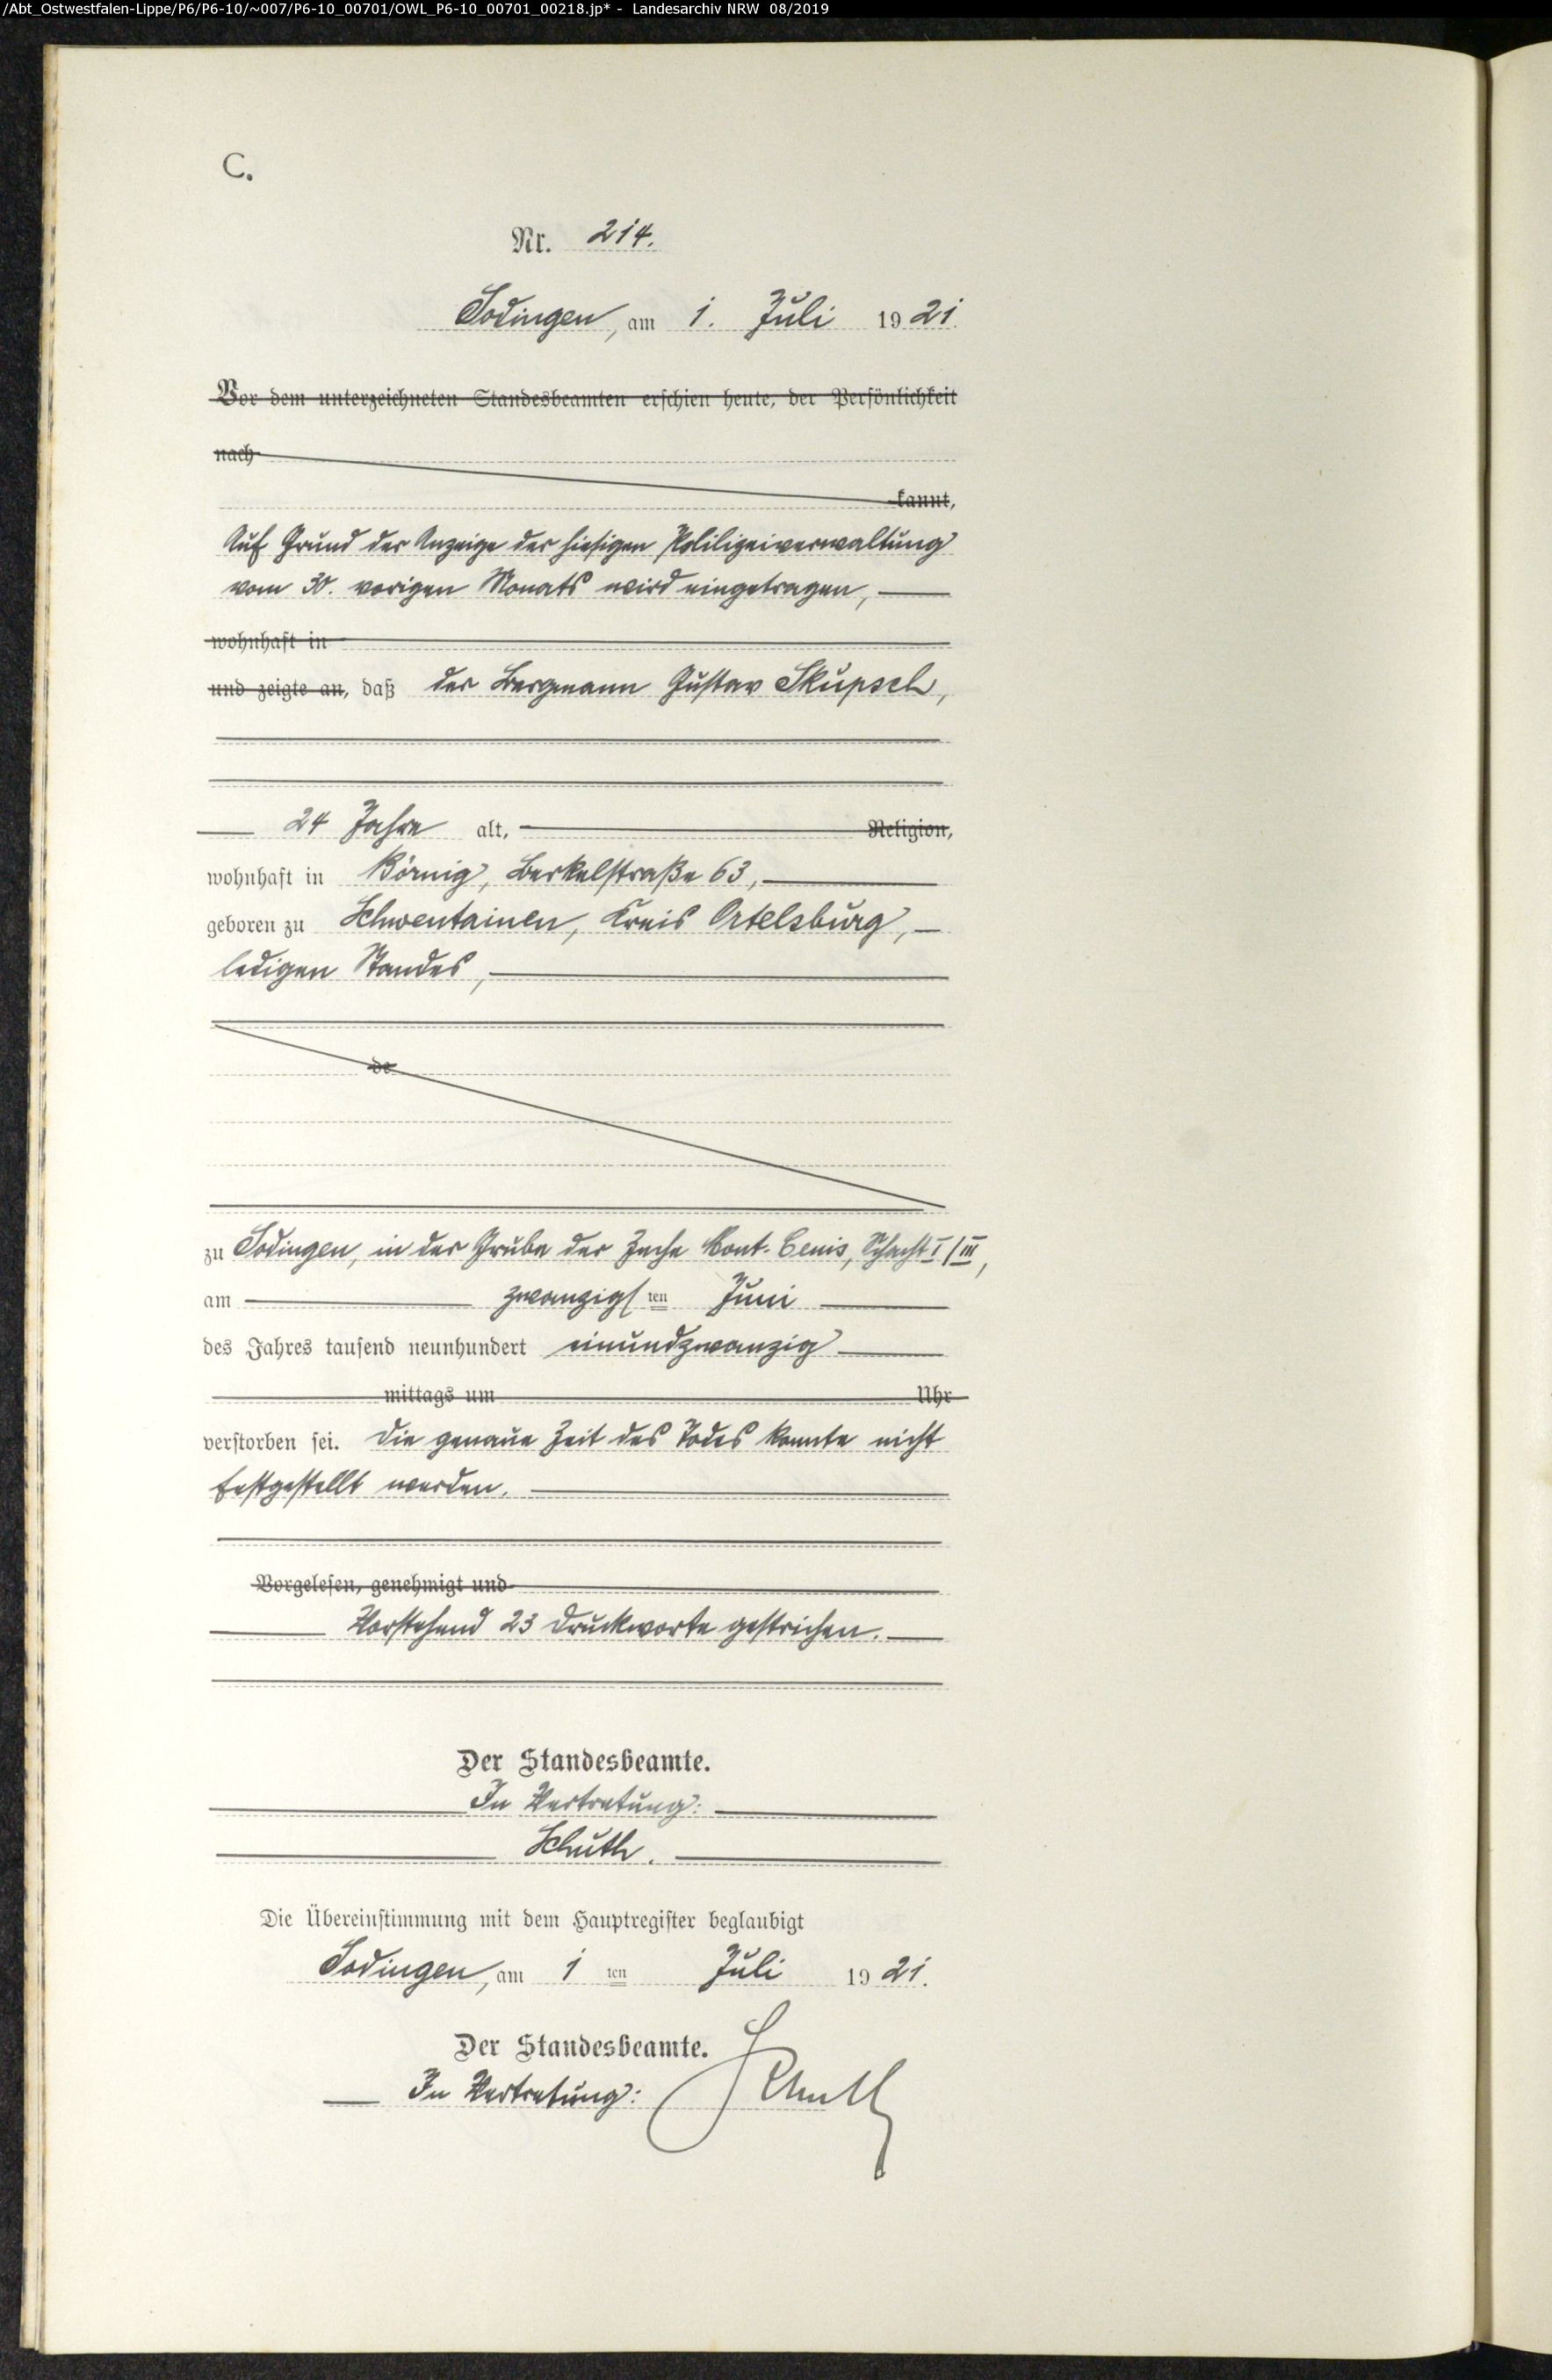 /Abt_Ostwestfalen-Lippe/P6/P6-10/~007/P6-10_00701/OWL_P6-10_00701_00218.jp* - Landesarchiv NRW 08/2019
C.
Nr. 214.
Sodingen, am 1. Juli 1921.
Vor dem unterzeichneten Standesbeamten erschien heute, der Persönlichkeit
nach
kannt,
Auf Grund der Anzeige der hiesigen Polilizeiverwaltung
vom 30. vorigen Monats wird eingetragen,
wohnhaft in
und zeigte an, daß der Bergmann Gustav Skupsch,
24 Jahre alt, Religion,
wohnhaft in Börnig, Berkelstraße 63,
geboren zu Schwentainen, Kreis Ortelsburg,
ledigen Standes,
de
zu Sodingen, in der Grube der Zeche Mont-Cenis, Schacht I/III,
am zwanzigsten Juni
des Jahres tausend neunhundert einundzwanzig
mittags um Uhr
verstorben sei. Die genaue Zeit des Todes konnte nicht
festgestellt werden.
Vorgelesen, genehmigt und
Vorstehend 23 Druckworte gestrichen.
Der Standesbeamte.
In Vertretung:
Schuth.
Die Übereinstimmung mit dem Hauptregister beglaubigt
Sodingen, am 1 ten Juli 1921.
Der Standesbeamte.
In Vertretung: Schuth